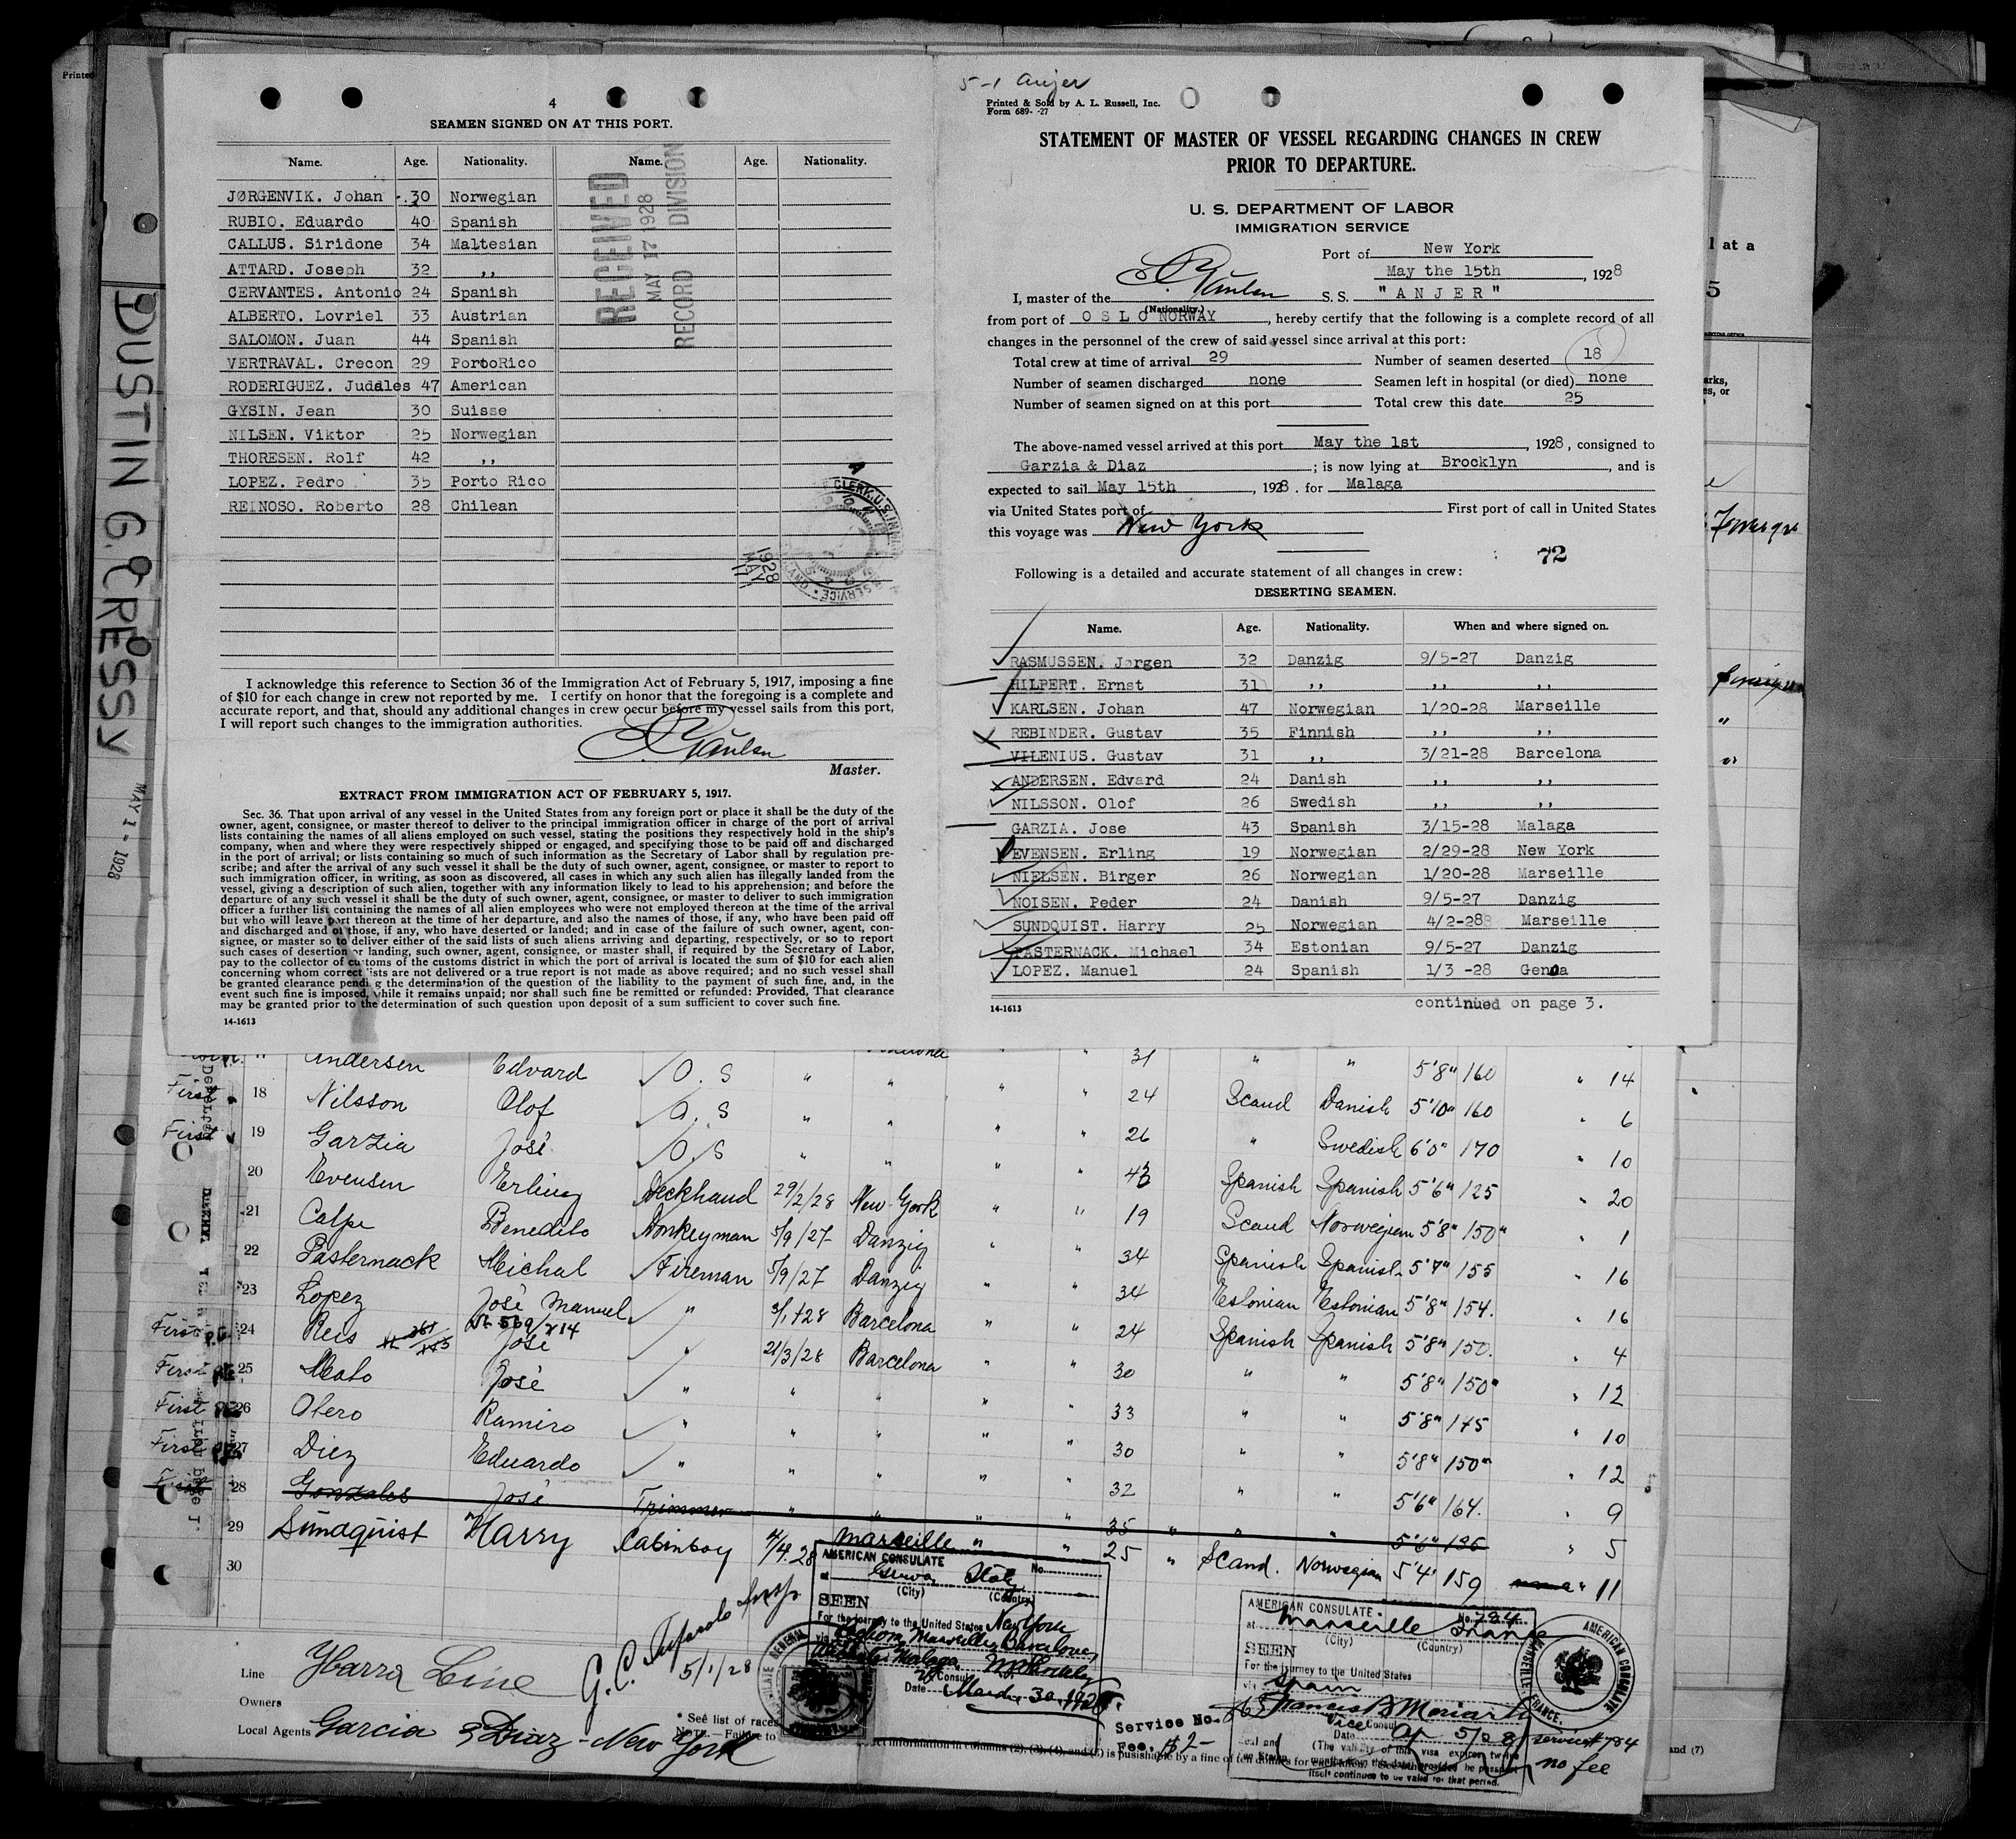 Printed
DUSTIN G. CRESSY
MAY 1 - 1928
4
SEAMEN SIGNED ON AT THIS PORT.
Name. Age. Nationality. Name. Age. Nationality.
JØRGENVIK. Johan 30 Norwegian
RUBIO. Eduardo 40 Spanish
CALLUS. Siridone 34 Maltesian
ATTARD. Joseph 32 ,,
CERVANTES. Antonio 24 Spanish
ALBERTO. Lovriel 33 Austrian
SALOMON. Juan 44 Spanish
VERTRAVAL. Crecon 29 PortoRico
RODERIGUEZ. Judales 47 American
GYSIN. Jean 30 Suisse
NILSEN. Viktor 25 Norwegian
THORESEN. Rolf 42 ,,
LOPEZ. Pedro 35 Porto Rico
REINOSO. Roberto 28 Chilean
RECEIVED
MAY 17 1928
RECORD DIVISION
1928
MAY
17
I acknowledge this reference to Section 36 of the Immigration Act of February 5, 1917, imposing a fine
of $10 for each change in crew not reported by me. I certify on honor that the foregoing is a complete and
accurate report, and that, should any additional changes in crew occur before my vessel sails from this port,
I will report such changes to the immigration authorities.
Master.
EXTRACT FROM IMMIGRATION ACT OF FEBRUARY 5, 1917.
Sec. 36. That upon arrival of any vessel in the United States from any foreign port or place it shall be the duty of the
owner, agent, consignee, or master thereof to deliver to the principal immigration officer in charge of the port of arrival
lists containing the names of all aliens employed on such vessel, stating the positions they respectively hold in the ship's
company, when and where they were respectively shipped or engaged, and specifying those to be paid off and discharged
in the port of arrival; or lists containing so much of such information as the Secretary of Labor shall by regulation pre-
scribe; and after the arrival of any such vessel it shall be the duty of such owner, agent, consignee, or master to report to
such immigration officer, in writing, as soon as discovered, all cases in which any such alien has illegally landed from the
vessel, giving a description of such alien, together with any information likely to lead to his apprehension; and before the
departure of any such vessel it shall be the duty of such owner, agent, consignee, or master to deliver to such immigration
officer a further list containing the names of all alien employees who were not employed thereon at the time of the arrival
but who will leave port thereon at the time of her departure, and also the names of those, if any, who have been paid off
and discharged and of those, if any, who have deserted or landed; and in case of the failure of such owner, agent, con-
signee, or master so to deliver either of the said lists of such aliens arriving and departing, respectively, or so to report
such cases of desertion or landing, such owner, agent, consignee, or master shall, if required by the Secretary of Labor,
pay to the collector of customs of the customs district in which the port of arrival is located the sum of $10 for each alien
concerning whom correct lists are not delivered or a true report is not made as above required; and no such vessel shall
be granted clearance pending the determination of the question of the liability to the payment of such fine, and, in the
event such fine is imposed, while it remains unpaid; nor shall such fine be remitted or refunded: Provided, That clearance
may be granted prior to the determination of such question upon deposit of a sum sufficient to cover such fine.
14-1613
5-1 Anjer
Printed & Sold by A. L. Russell, Inc.
Form 689- -27
STATEMENT OF MASTER OF VESSEL REGARDING CHANGES IN CREW
PRIOR TO DEPARTURE.
U. S. DEPARTMENT OF LABOR
IMMIGRATION SERVICE
Port of New York
May the 15th, 1928
I, master of the S. S. "ANJER"
(Nationality.)
from port of OSLO NORWAY, hereby certify that the following is a complete record of all
changes in the personnel of the crew of said vessel since arrival at this port:
Total crew at time of arrival 29 Number of seamen deserted 18
Number of seamen discharged none Seamen left in hospital (or died) none
Number of seamen signed on at this port Total crew this date 25
The above-named vessel arrived at this port May the 1st, 1928, consigned to
Garzia & Diaz; is now lying at Brocklyn, and is
expected to sail May 15th, 1928. for Malaga
via United States port of First port of call in United States
this voyage was New York
72
Following is a detailed and accurate statement of all changes in crew:
DESERTING SEAMEN.
Name. Age. Nationality. When and where signed on.
RASMUSSEN. Jørgen 32 Danzig 9/5-27 Danzig
HILPERT. Ernst 31 ,, ,, ,,
KARLSEN. Johan 47 Norwegian 1/20-28 Marseille
REBINDER. Gustav 35 Finnish ,, ,,
VILENIUS. Gustav 31 ,, 3/21-28 Barcelona
ANDERSEN. Edvard 24 Danish ,, ,,
NILSSON. Olof 26 Swedish ,, ,,
GARZIA. Jose 43 Spanish 3/15-28 Malaga
EVENSEN. Erling 19 Norwegian 2/29-28 New York
NIELSEN. Birger 26 Norwegian 1/20-28 Marseille
NOISEN. Peder 24 Danish 9/5-27 Danzig
SUNDQUIST. Harry 25 Norwegian 4/2-288 Marseille
PASTERNACK. Michael 34 Estonian 9/5-27 Danzig
LOPEZ. Manuel 24 Spanish 1/3 -28 Genoa
continued on page 3.
14-1613
l at a
5
Andersen Edvard O. S " " " " 31 " " 5'8" 160 " 14
First 18 Nilsson Olof O. S " " " " 24 Scand Danish 5'10" 160 " 6
First 19 Garzia José O. S " " " " 26 " Swedish 6'0" 170 " 10
20 Evensen Erling Deckhand 29/2/28 New York " " 43 Spanish Spanish 5'6" 125 " 20
21 Calpe Benedito Donkeyman 5/9/27 Danzig " " 19 Scand Norwegian 5'8" 150" " 1
22 Pasternack Michal Fireman 5/9/27 Danzig " " 34 Spanish Spanish 5'7" 155 " 16
23 Lopez José Manuel " 3/1 28 Barcelona " " 34 Estonian Estonian 5'8" 154. " 16
First 24 Reis José " 21/3/28 Barcelona " " 24 Spanish Spanish 5'8" 150. " 4
First 25 Mato José " " " " " 30 " " 5'8" 150" " 12
First 26 Otero Ramiro " " " " " 33 " " 5'8" 175 " 10
First 27 Diez Eduardo " " " " " 30 " " 5'8" 150" " 12
First 28 Gonzales José Trimmer " " " " 32 " " 5'6" 164. " 9
35 " " " 5'6" 136 " 5
29 Sundquist Harry Cabinboy 4/4.28 Marseille " " 25 " Scand. Norwegian 5'4" 159 " 11
30
Line Ybarra Line
5/1/28
Owners
Local Agents Garcia & Diaz - New York
* See list of races
NOTE.—Failure to
information in columns (2), (3), (4), and (5) is punishable by a fine of ten dollars for each alien.
and (7)
AMERICAN CONSULATE No.
at Genoa Italy
(City) (Country)
SEEN
For the journey to the United States New York
Marseille, Barcelona,
Malaga
Consul
Date March 30 1928.
Service No. 865
Fee, $2-
AMERICAN CONSULATE. No. 784
at Marseille France
(City) (Country)
SEEN
For the journey to the United States
via Spain
Francis B Moriarty
Vice Consul
Date Ap 5/28
(The validity of this visa expires twelve
months from this date provided the passport
itself continues to be valid for that period.
AMERICAN CONSULATE
MARSEILLE, FRANCE.
service # 784
no fee